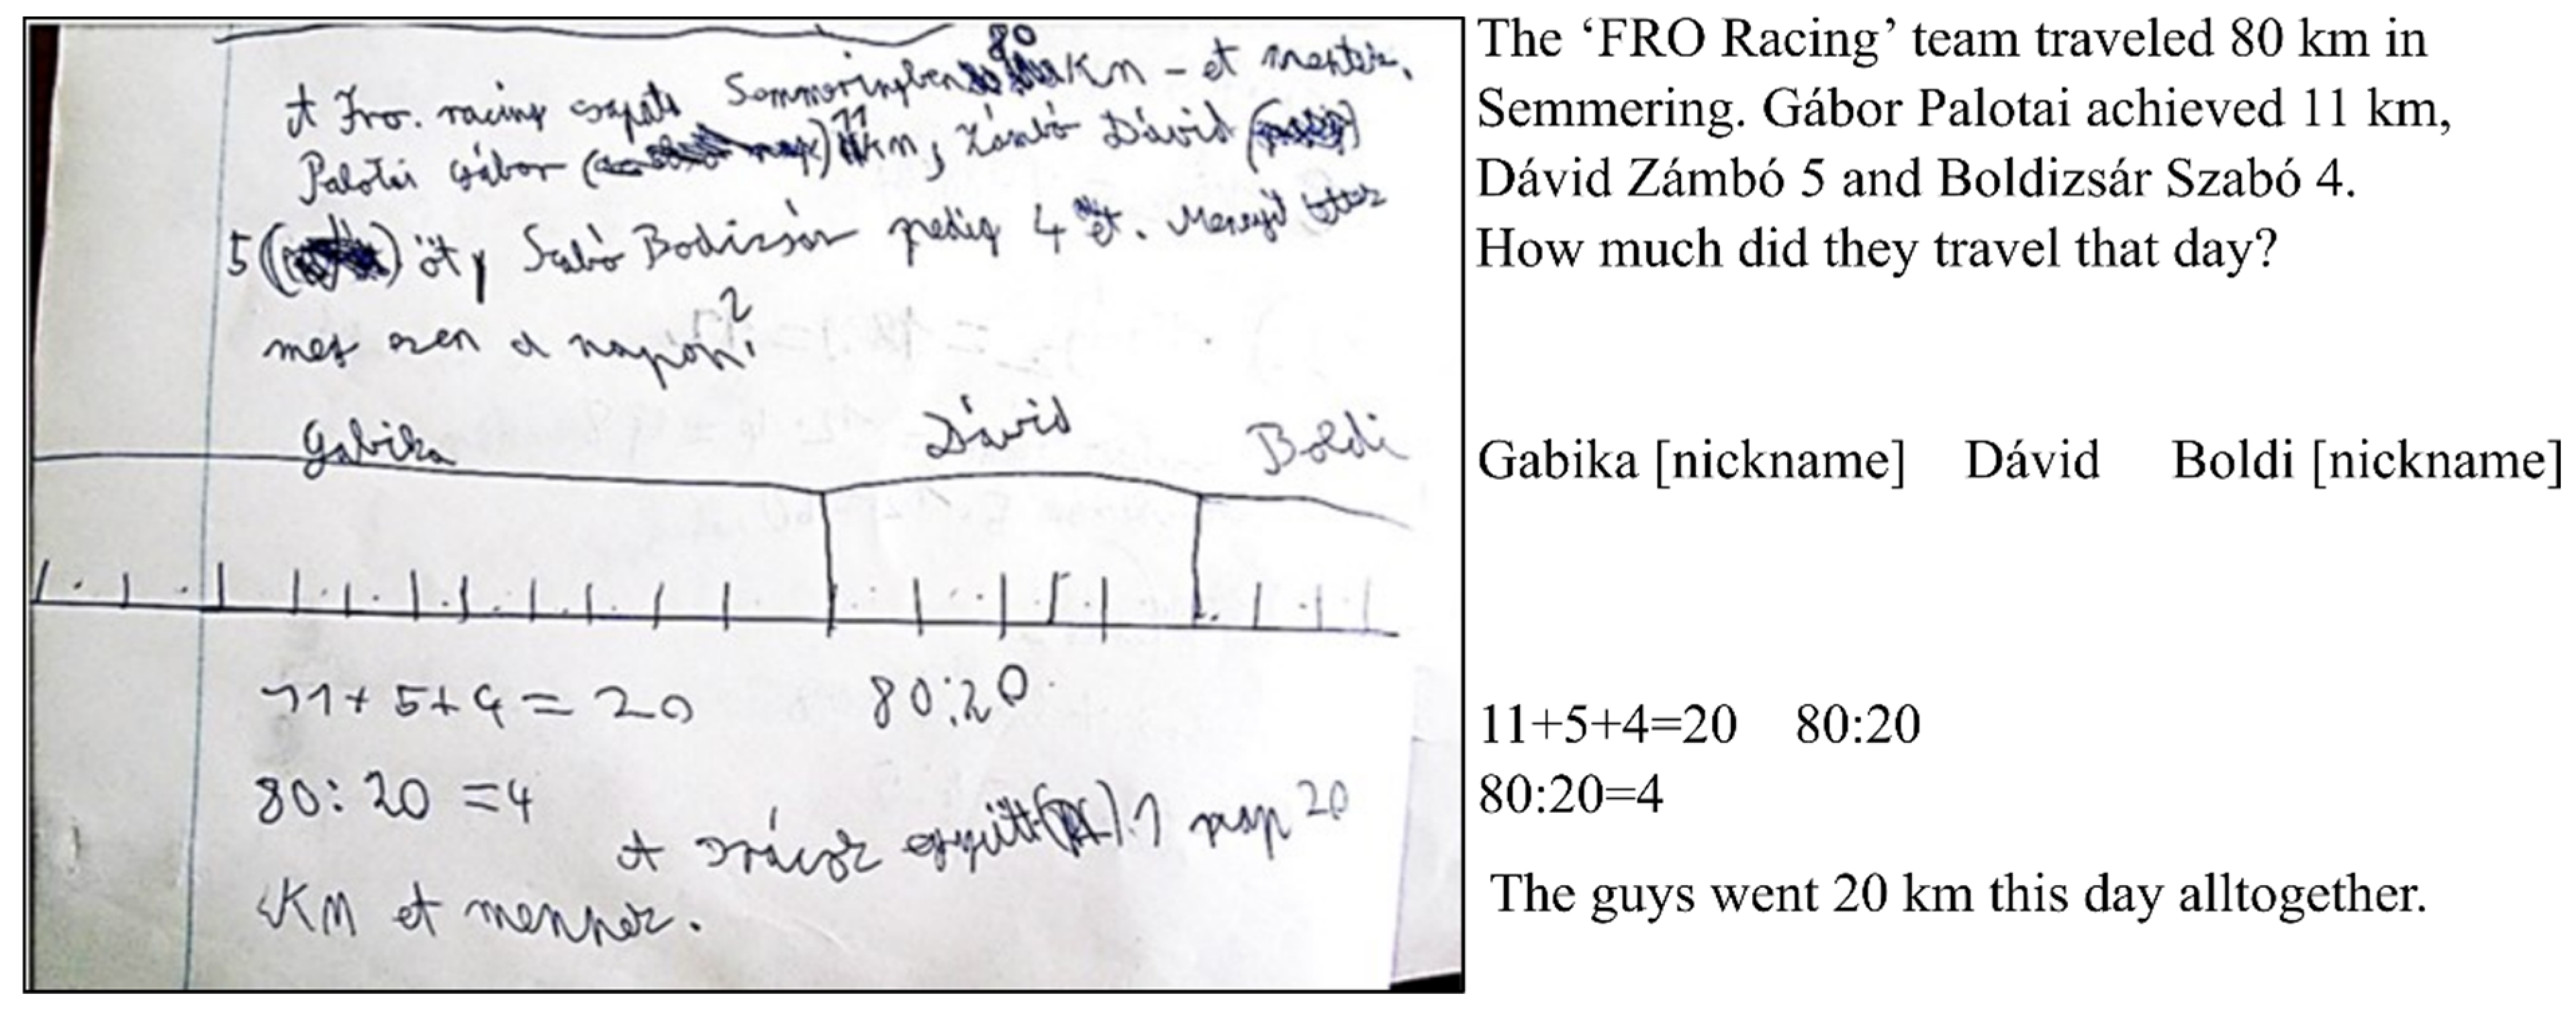 80
A Fro. racing csapata Semmeringben KM - et mentek.
Palotai Gábor 11 km, Zámbó Dávid
5 öt, Szabó Bodizsár pedig 4 et. Menyit
ezen a napon?
Gabika Dávid Boldi
11+5+4=20 80:20
80:20=4
A srácok együtt 1 nap 20
KM et mennek.
The ‘FRO Racing’ team traveled 80 km in
Semmering. Gábor Palotai achieved 11 km,
Dávid Zámbó 5 and Boldizsár Szabó 4.
How much did they travel that day?
Gabika [nickname] Dávid Boldi [nickname]
11+5+4=20 80:20
80:20=4
The guys went 20 km this day alltogether.